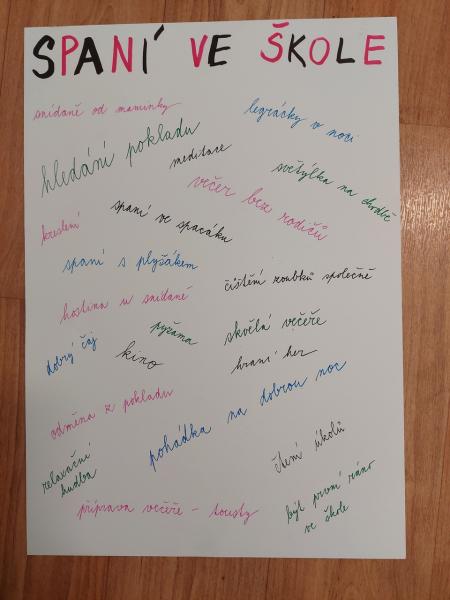 SPANÍ VE ŠKOLE
snídaně od maminky
legrácky v noci
hledání pokladu
meditace
světýlka na chodbě
večer bez rodičů
spaní ve spacáku
kreslení
spaní s plyšákem
čištění zoubků společně
hostina u snídaně
pyžama
skvělá večeře
dobrý čaj
kino
hraní her
pohádka na dobrou noc
odměna z pokladu
čtení úkolů
relaxační
hudba
být první ráno
ve škole
příprava večeře - tousty